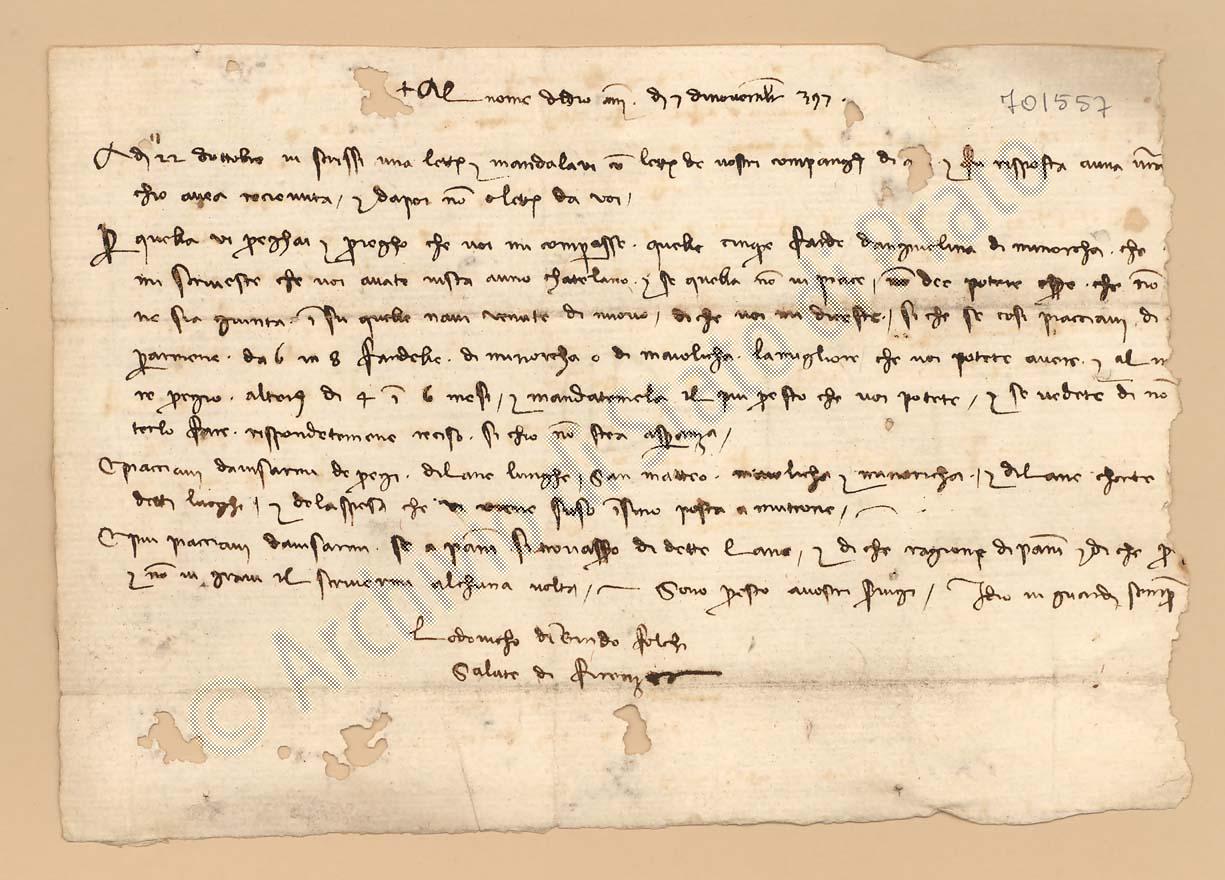 + Al nome di Dio am. dì 7 di novembre 397.
701557
A dì 22 d'ottobre vi scrissi una lett. e mandalavi co lett. de vostri compangni di e risposta a una vra
ch'io avea ricievuta, e dapoi non ò lett. da voi,
Per quella vi preghai e priegho che voi mi comprasse quelle cinque farde d'angnielina di minorcha che
mi scriveste che voi avate vista a uno chatelano e se quella non vi piace, non dee potere essere che non
ne sia giunta i su quelle navi venute di nuovo, di che voi mi direste, si che se così piacciavi di
parmene da 6 in 8 fardelle di minorcha o di maiolicha la migliore che voi potete avere e al
re pregio a di 4 i 6 mesi, e mandatemela il più presto che voi potete, e se vedete di non
terlo fare rispondetemene reciso si ch'io non stea a speranza,
E piacciavi d'avisarmi de pregi di lane lunghe, San Matteo maiolicha e minoricha, e di lane chorte
detti luoghi, e de la spesa che vi viene suso insino posta a mutrone,
E più piacciavi d'avisarmi se a panni si di dette lane, e di che ragione di panni e di che pre
e non vi gravi il scrivermi alchuna volta, Sono presto a vostri servigi, Idio vi guardi sempre
Lodovicho di Bindo
Salute di Firenze
© Archivio di Stato di Prato